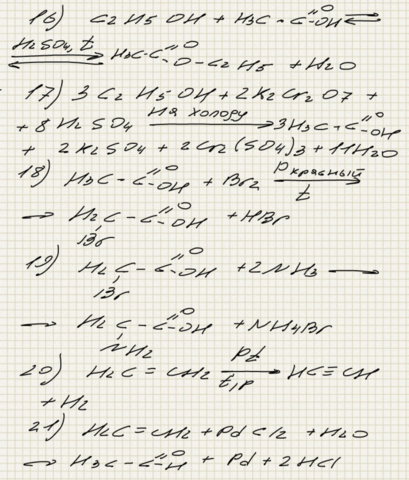 16) C2H5OH + H3C - C=O OH ⇌
H2SO4, t ⇌ H3C-C=O O-C2H5 + H2O
17) 3C2H5OH + 2K2Cr2O7 +
+ 8H2SO4 на холоду → 3H3C-C=O OH
+ 2K2SO4 + 2Cr2(SO4)3 + 11H2O
18) H3C - C=O OH + Br2 P красный t →
→ H2C - C=O OH + HBr
Br
19) H2C - C=O OH + 2NH3 →
Br
→ H2C - C=O OH + NH4Br
NH2
20) H2C = CH2 Pt t,p → HC≡CH
+ H2
21) H2C=CH2 + PdCl2 + H2O
→ H3C - C=O H + Pd + 2HCl